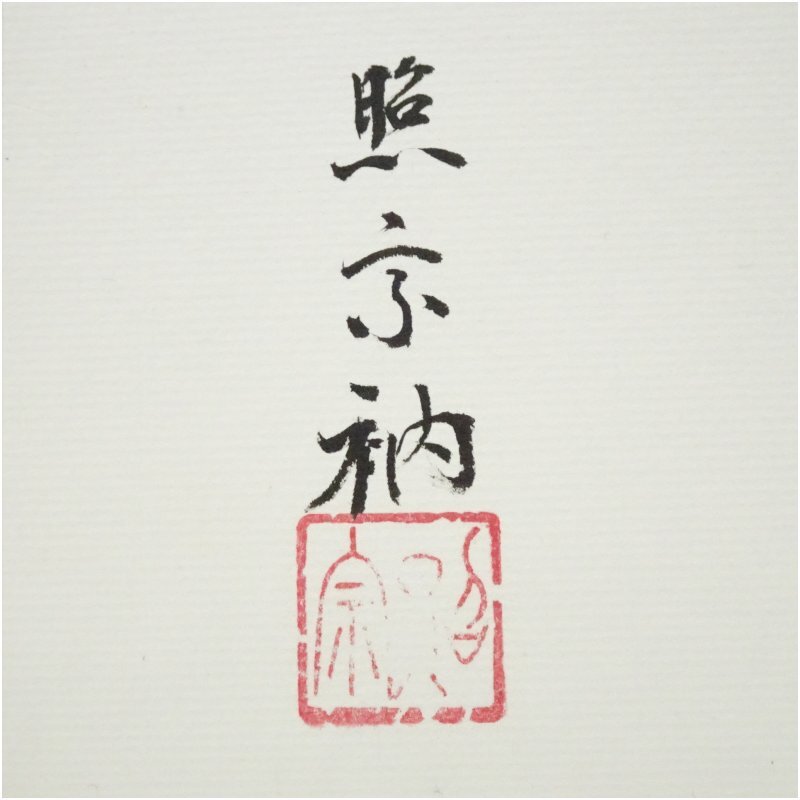 照宗衲